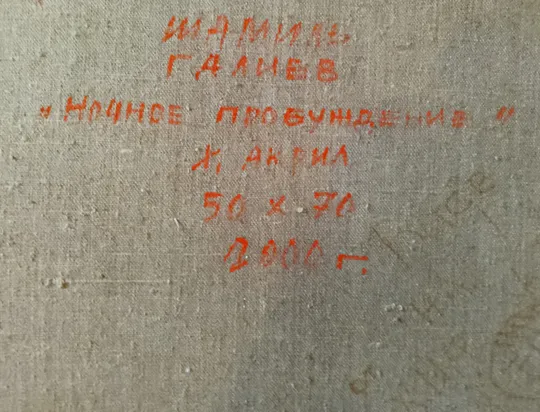 ШАМИЛЬ
ГАЛИЕВ
"НОЧНОЕ ПРОБУЖДЕНИЕ"
Х, АКРИЛ
50 x 70
2000 г.